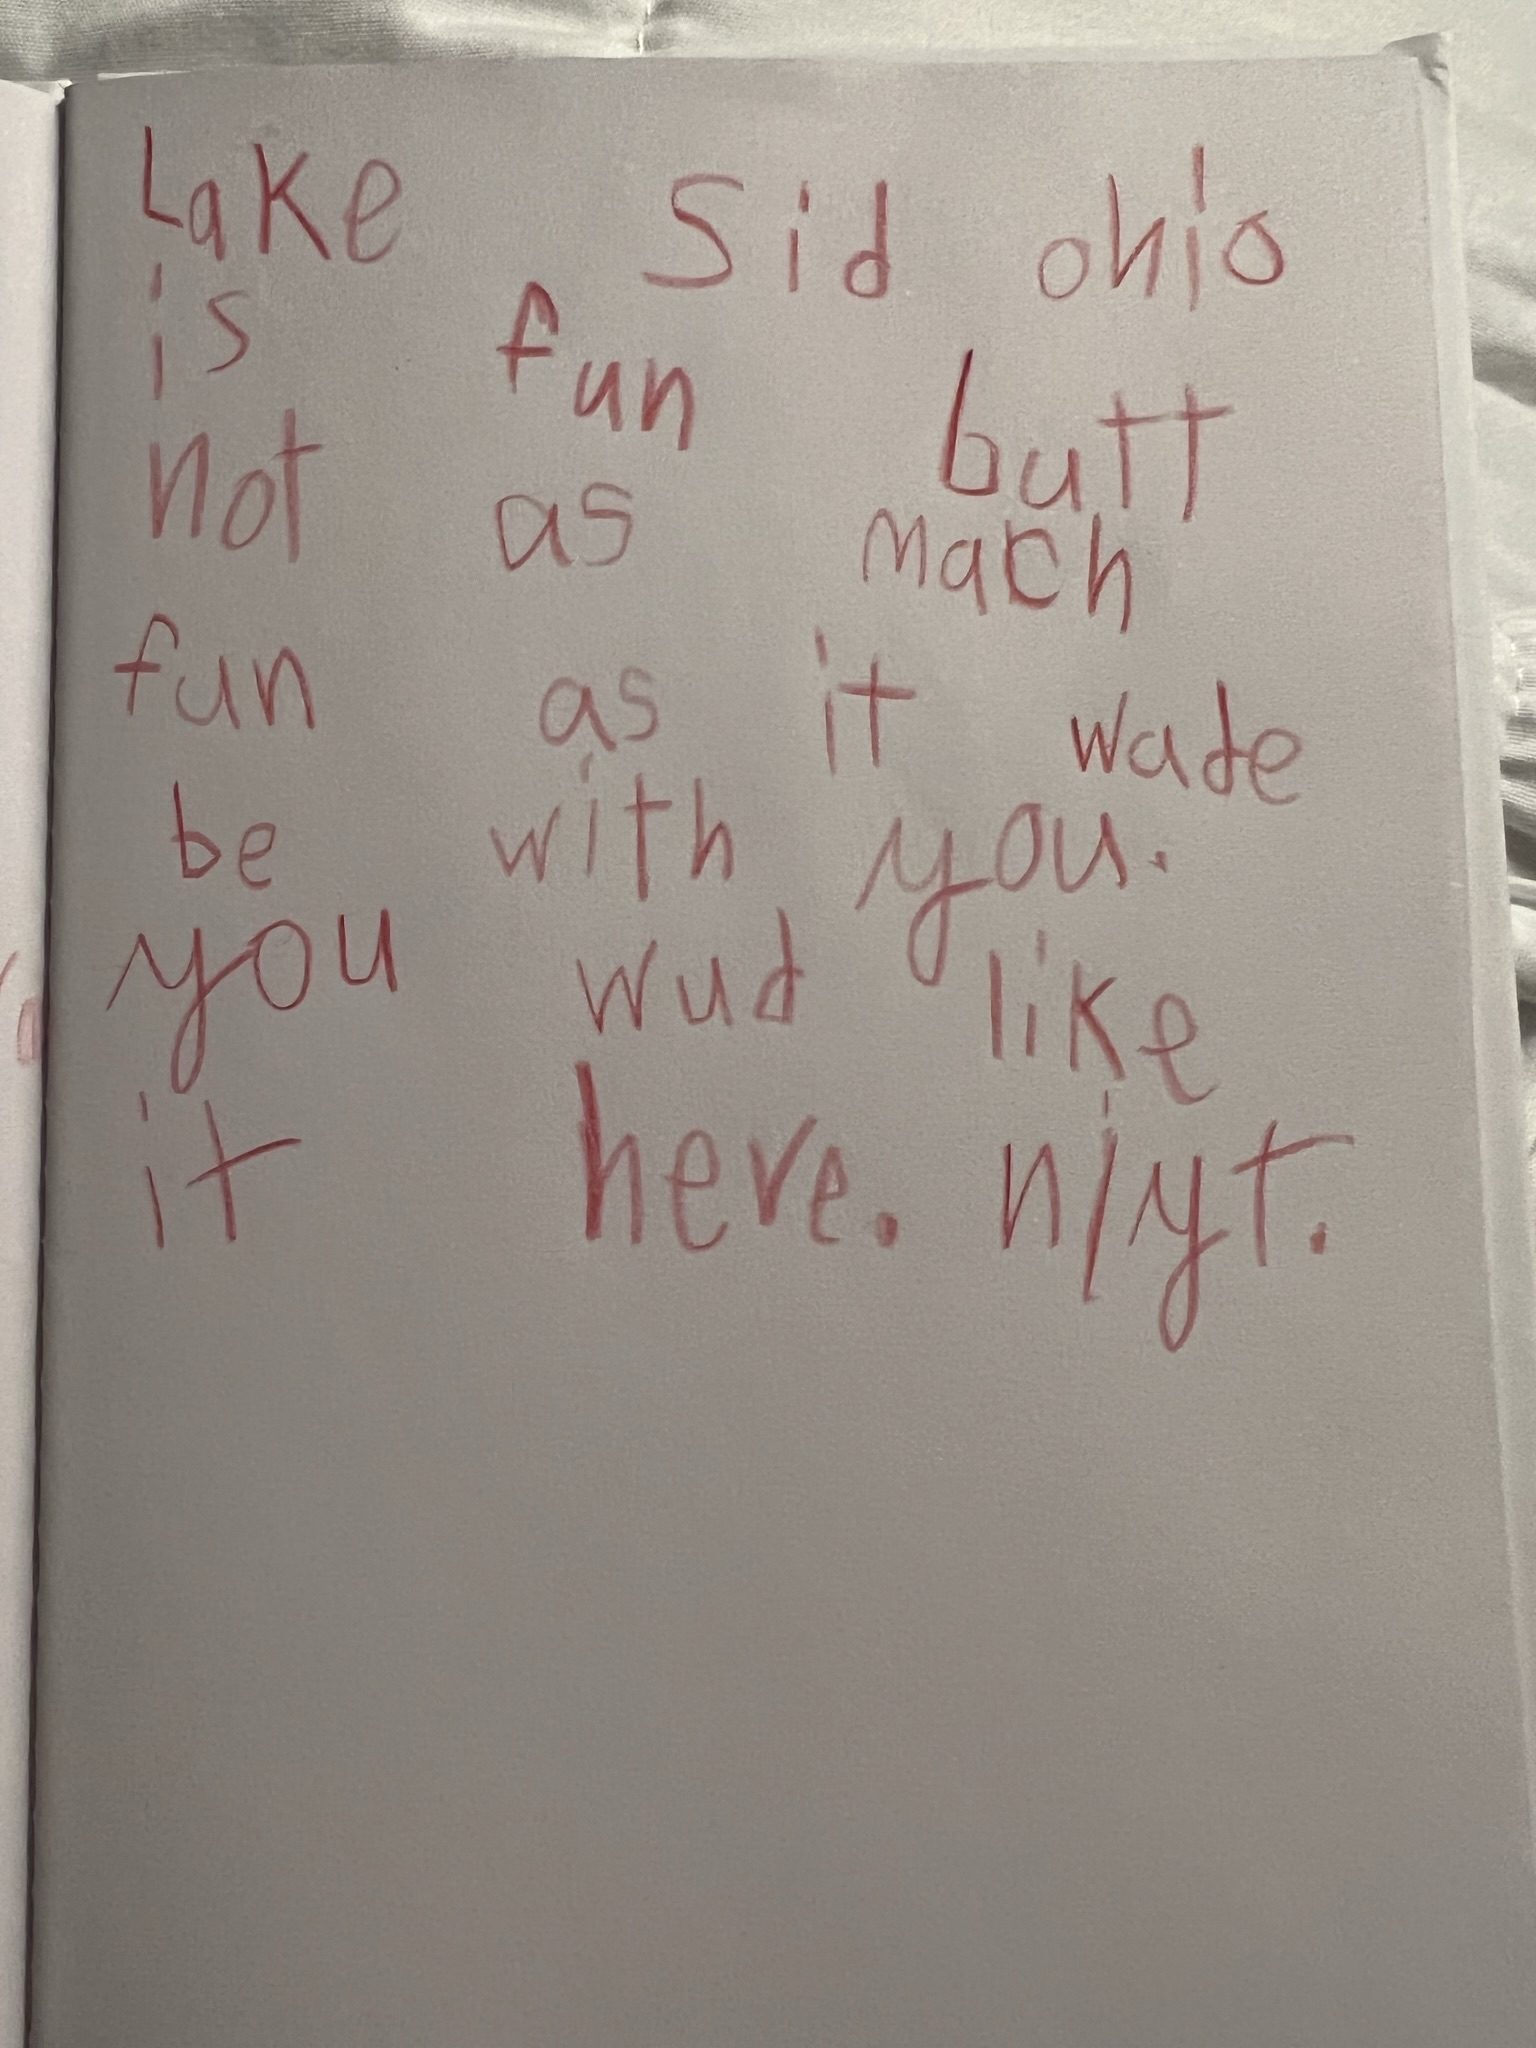 Lake Sid ohio
is fun butt
not as mach
fun as it wade
be with you.
you wud like
it here. niyt.